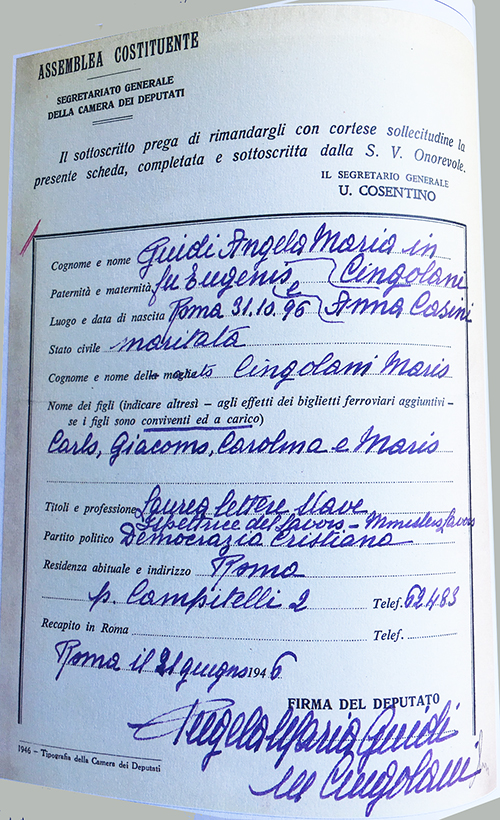 ASSEMBLEA COSTITUENTE
SEGRETARIATO GENERALE
DELLA CAMERA DEI DEPUTATI
Il sottoscritto prega di rimandargli con cortese sollecitudine la
presente scheda, completata e sottoscritta dalla S. V. Onorevole.
IL SEGRETARIO GENERALE
U. COSENTINO
Cognome e nome Guidi Angela Maria in
Cingolani
Paternità e maternità fu Eugenio e
Anna Casini
Luogo e data di nascita Roma 31.10.96
Stato civile maritata
Cognome e nome del marito Cingolani Mario
Nome dei figli (indicare altresì - agli effetti dei biglietti ferroviari aggiuntivi -
se i figli sono conviventi ed a carico)
Carlo, Giacomo, Carolina e Mario
Titoli e professione Laurea lettere slave
Ispettrice del lavoro - Ministero Lavoro
Partito politico Democrazia Cristiana
Residenza abituale e indirizzo Roma
p. Campitelli 2 Telef. 62483
Recapito in Roma Telef.
Roma il 21 giugno 1946
FIRMA DEL DEPUTATO
Angela Maria Guidi
in Cingolani
1946 - Tipografia della Camera dei Deputati